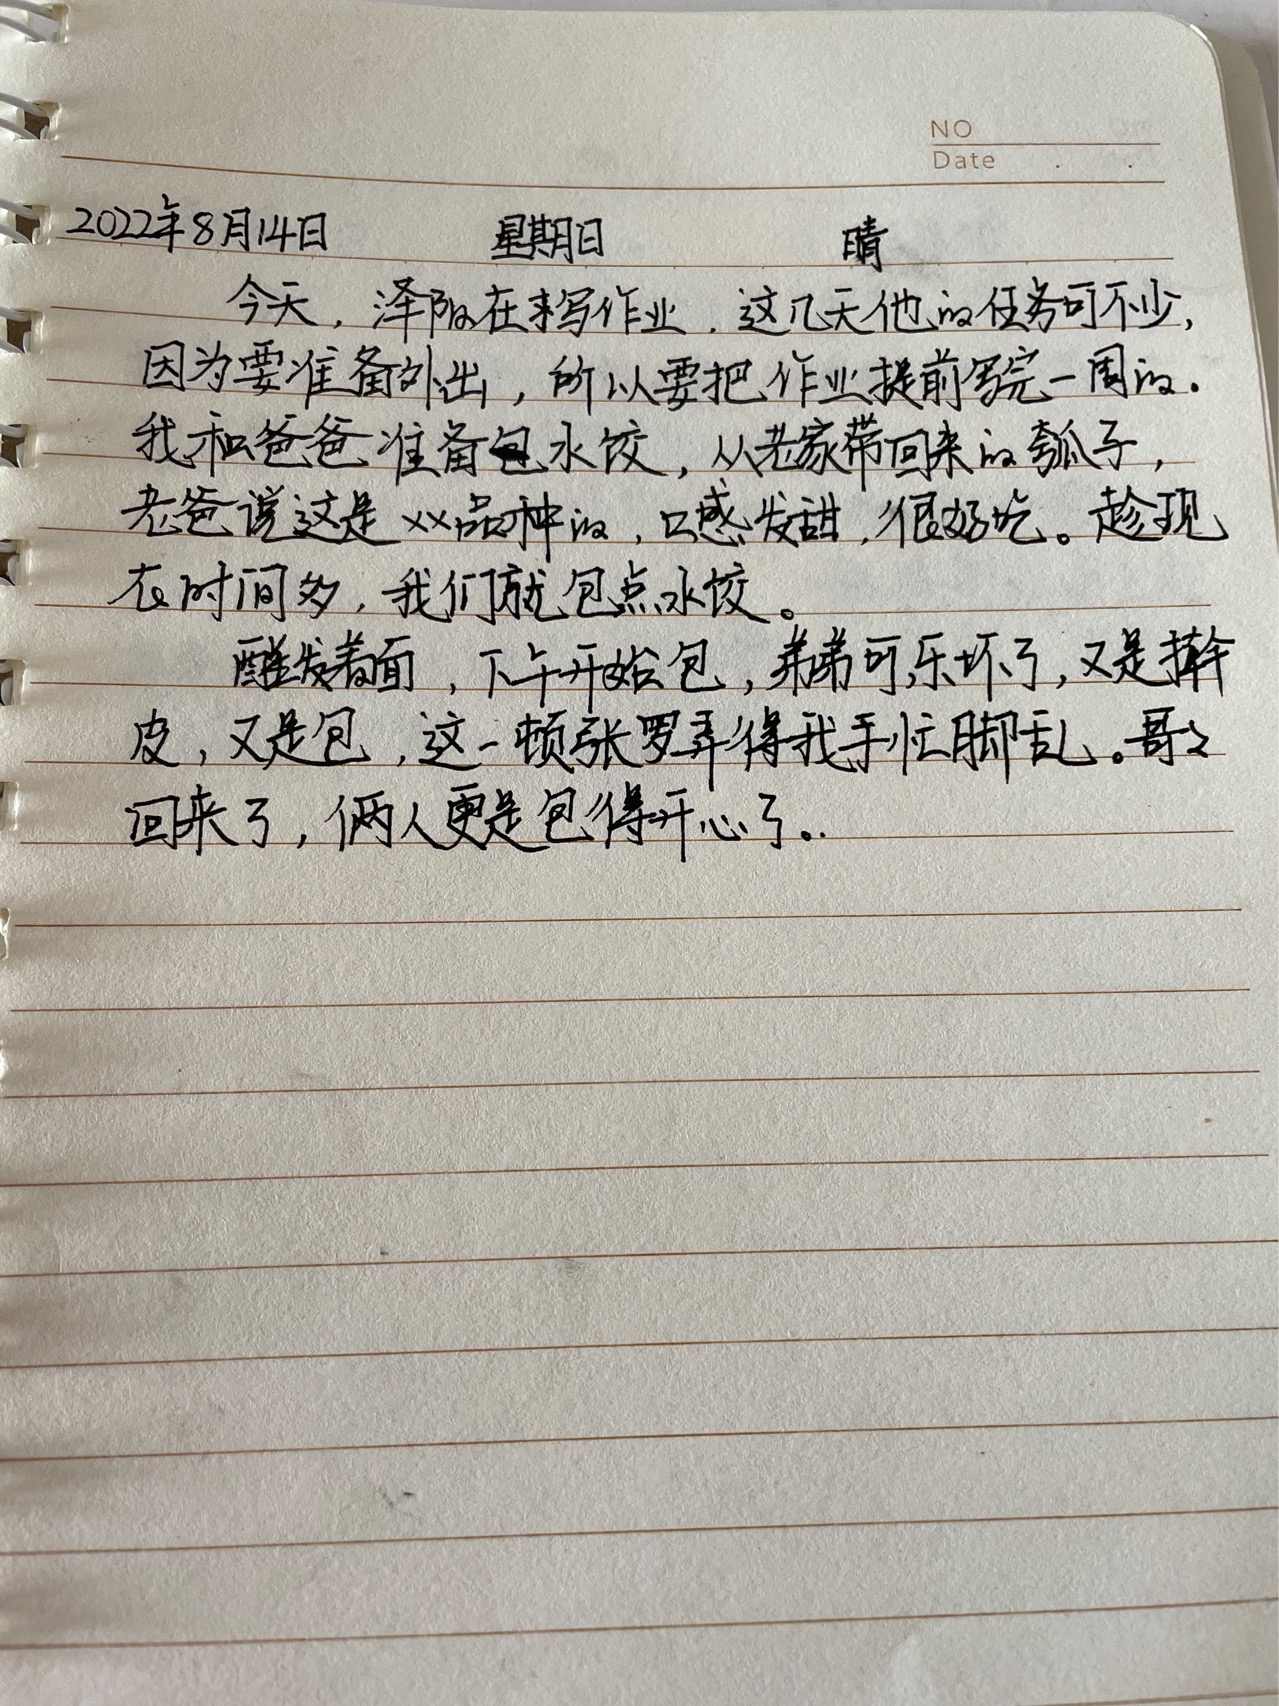 NO
Date . .
2022年8月14日 星期日 晴
今天，泽阳在来写作业，这几天他的任务可不少，
因为要准备外出，所以要把作业提前写完一周的.
我和爸爸准备包水饺，从老家带回来的瓠子，
老爸说这是xx品种的，口感发甜，很好吃。趁现
在时间多，我们就包点水饺。
醒发着面，下午开始包，弟弟可乐坏了，又是擀
皮，又是包，这一顿张罗弄得我手忙脚乱。哥々
回来了，俩人更是包得开心了。.